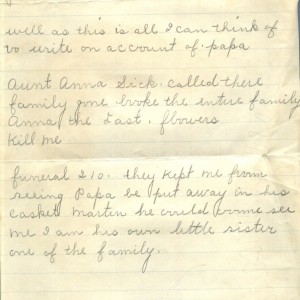 well as this is all I can think of
to write on account of papa
Aunt Anna Sick. called there
family gone broke the entire family
Anna the Last. flowers
Kill me
funeral 210. they kept me from
seeing Papa be put away in his
casket Martin he could come see
me I am his own little sister
one of the family.